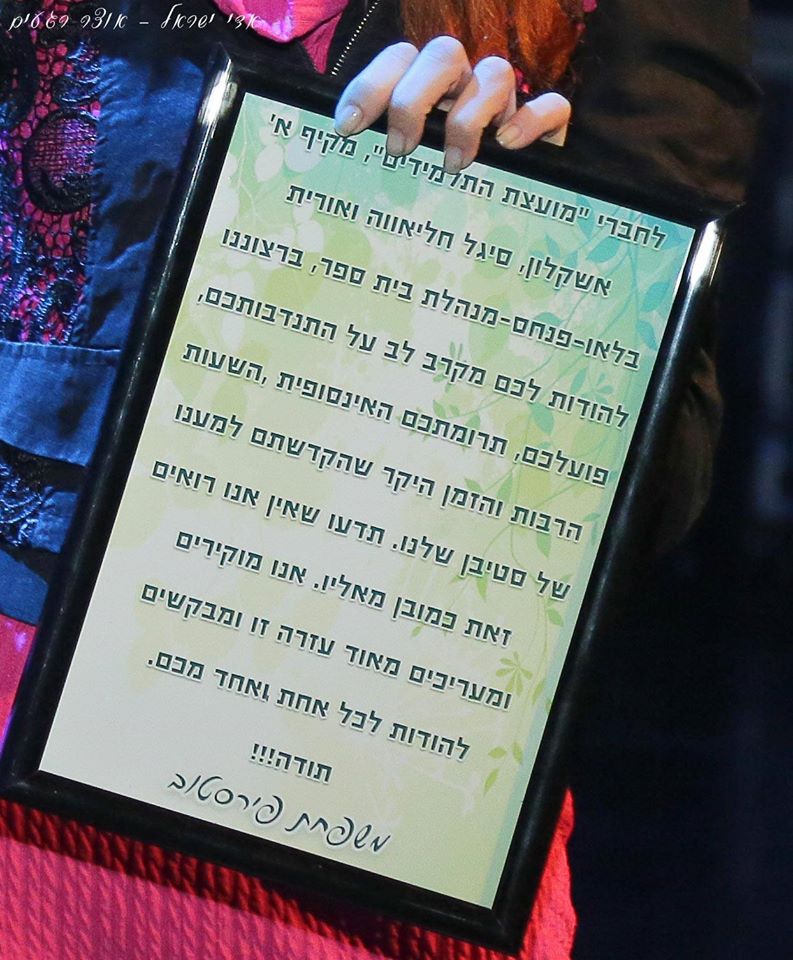 אדי ישראל - אוצר רגעים
לחברי "מועצת התלמידים", מקיף א'
אשקלון, סיגל חליאווה ואורית
בלאו-פנחס-מנהלת בית ספר, ברצוננו
להודות לכם מקרב לב על התנדבותכם,
פועלכם, תרומתכם האינסופית ,השעות
הרבות והזמן היקר שהקדשתם למענו
של סטיבן שלנו. תדעו שאין אנו רואים
זאת כמובן מאליו. אנו מוקירים
ומעריכים מאוד עזרה זו ומבקשים
להודות לכל אחת ואחד מכם.
תודה!!!
משפחת פירסטוב